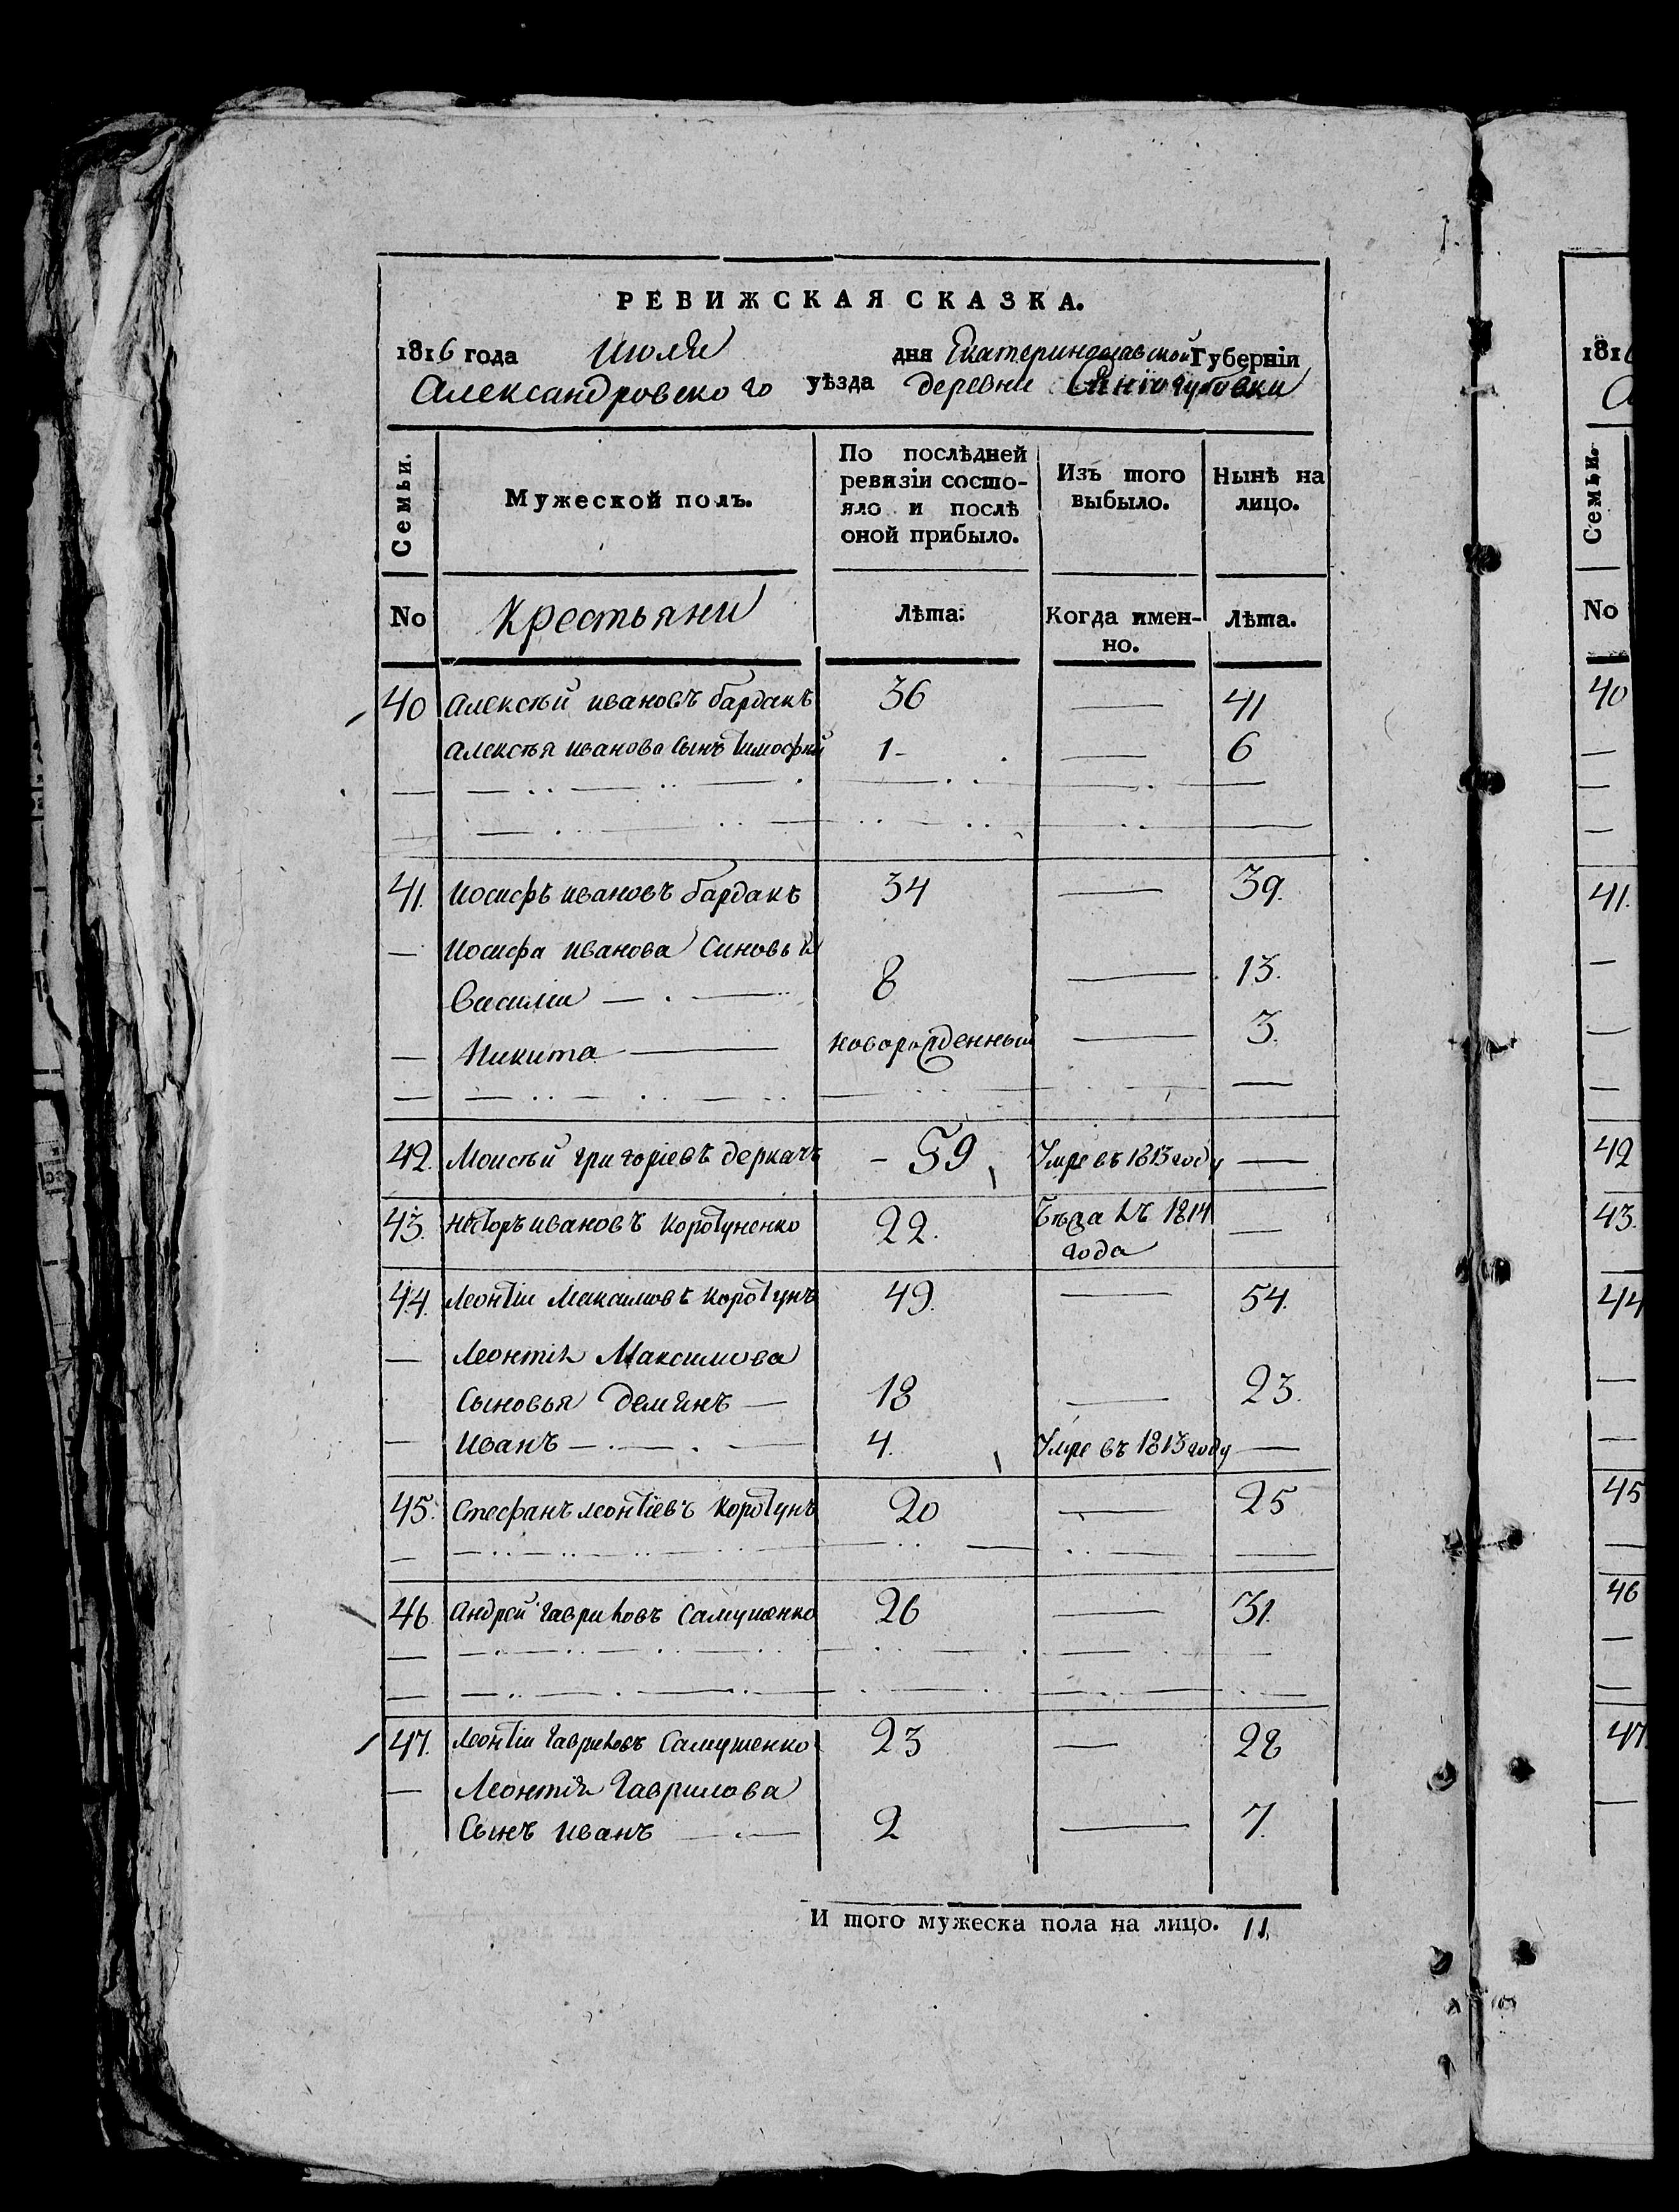 РЕВИЖСКАЯ СКАЗКА.
1816 года Июля дня Екатеринославской Губерніи
Александровского уѣзда деревни
Семьи. Мужеской полъ. По послѣдней ревизіи состояло и послѣ оной прибыло. Изъ того выбыло. Нынѣ на лицо.
No Крестьяни Лѣта. Когда именно. Лѣта.
40 Алексѣй ивановъ бардакъ 36 — 41
Алексѣя иванова Сынъ Тимофей 1 — 6
41. Иосифъ ивановъ бардакъ 34 — 39.
— Иосифа иванова Синовья
Василіи — 8 — 13.
— Никита — новорожденный — 3.
42. Моисѣй григоріевъ деркачъ 59 Умре въ 1813 году —
43. Несторъ ивановъ Коротуненко 22. Бѣга съ 1814 —
года
44. Леонтіи Максимовъ Коротунъ 49. — 54.
— Леонтія Максимова
Сыновья Демянъ — 18 — 23.
— Иванъ — 4. Умре въ 1813 году —
45. Стефанъ леонтіевъ Коротунъ 20 — 25
46. Андрей гавриловъ Самушенко 26 — 31.
47. Леонтіи гавриловъ Самушенко 23 — 28
— Леонтія Гаврилова
Сынъ иванъ — 2 — 7.
И того мужеска пола на лицо. 11.
1816
Семьи.
No
40
41.
42
43.
44
45
46
47